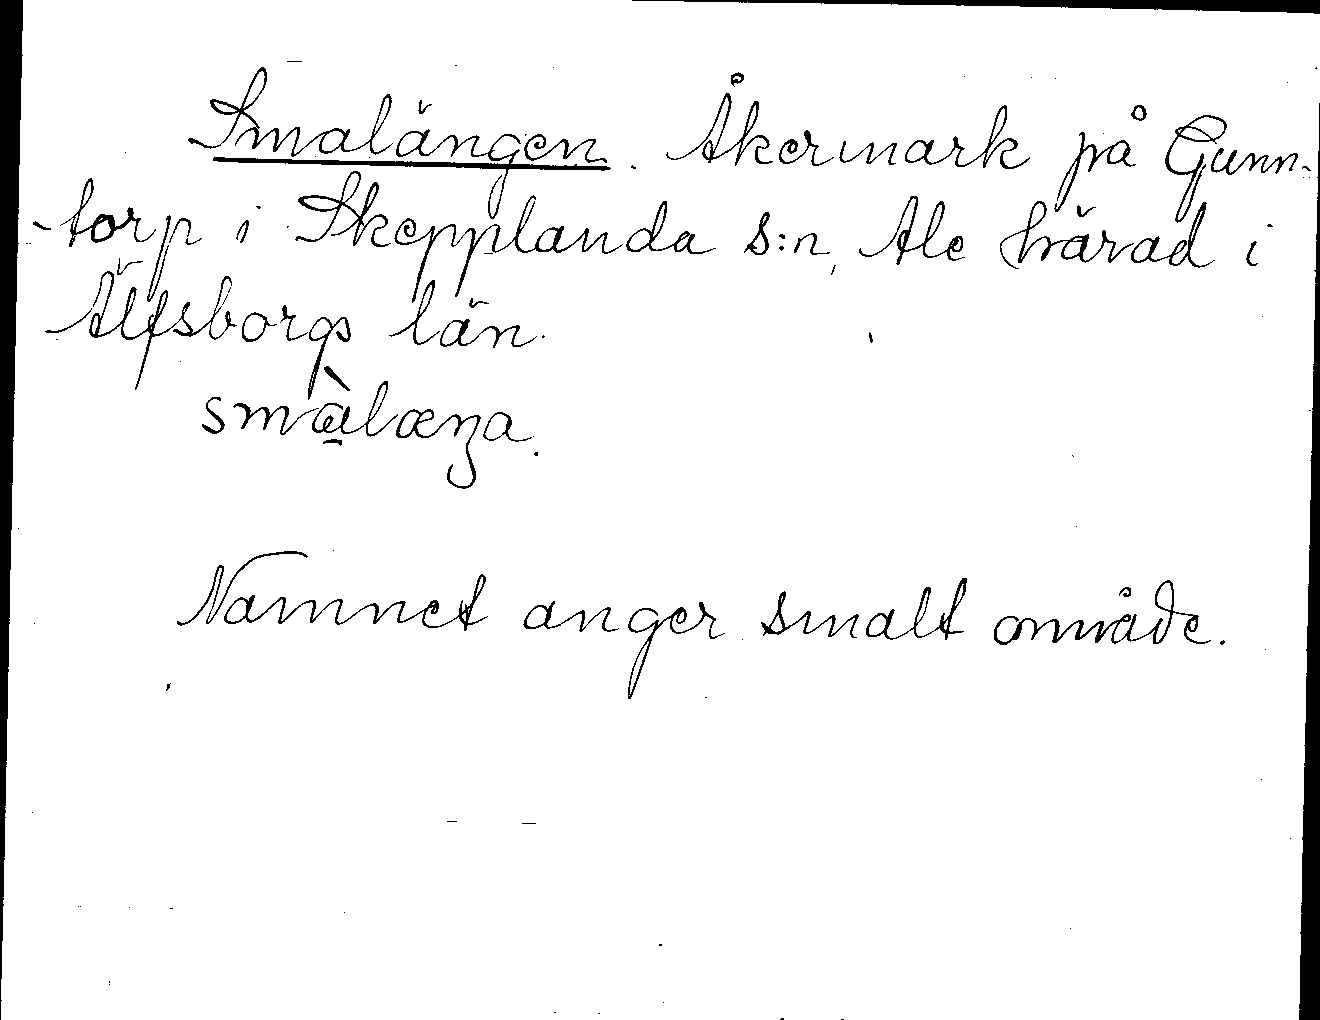 Smalängen. Åkermark på Gunn-
-torp i Skepplanda s:n, Ale härad i
Älfsborgs län.
smàlæŋa.
Namnet anger smalt område.